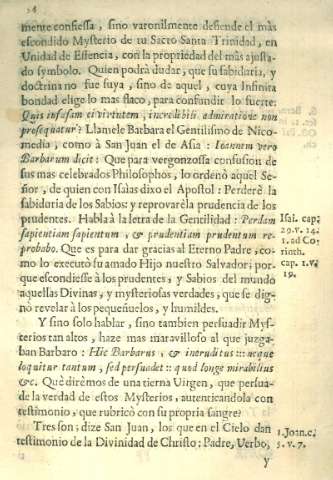 mente confiessa, sino varonilmente defiende el màs
escondido Mysterio de tu Sacro Santa Trinidad, en
Unidad de Essencia, con la propriedad del màs ajusta-
do symbolo. Quien podrà dudar, que su sabiduria, y
doctrina no fue suya, sino de aquel, cuya Infinita
bondad elige lo mas flaco, para confundir lo fuerte:
Quis ipsam eivirtutem, incredibili admiratione non
prosequatur? Llamele Barbara el Gentilismo de Nico-
media, como à San Juan el de Asia: Ioannem vero
Barbarum dicit: Que para vergonzosa confusion de
sus mas celebrados Philosophos, lo ordenò aquel Se-
ñor, de quien con Isaias dixo el Apostol: Perderè la
sabiduria de los Sabios y reprovarèla prudencia de los
prudentes. Habla à la letra de la Gentilidad: Perdam
sapientiam sapientum, & prudentiam prudentum re-
probabo. Que es para dar gracias al Eterno Padre, co-
mo lo executò su amado Hijo nuestro Salvador; por-
que escondiesse à los prudentes, y Sabios del mundo
aquellas Divinas, y mysteriosas verdades, que se dig-
nò revelar à los pequeñuelos, y humildes.
Y sino solo hablar, sino tambien persuadir Mys-
terios tan altos, haze mas maravilloso al que juzga-
ban Barbaro: Hic Barbarus, & ineruditus ::: neque
loquitur tantum, sed persuadet :: quod longè mirabilius
&c. Què dirèmos de una tierna Uirgen, que persua-
de la verdad de estos Mysterios, autenticandola con
testimonio, que rubricò con su propria sangre?
Tres son; dize San Juan, los que en el Cielo dan
testimonio de la Divinidad de Christo: Padre, Verbo,
y
Isai. cap.
29. v. 14.
1. ad Co
rinth.
cap. 1. v.
19.
1. Joan. c.
5. v. 7.